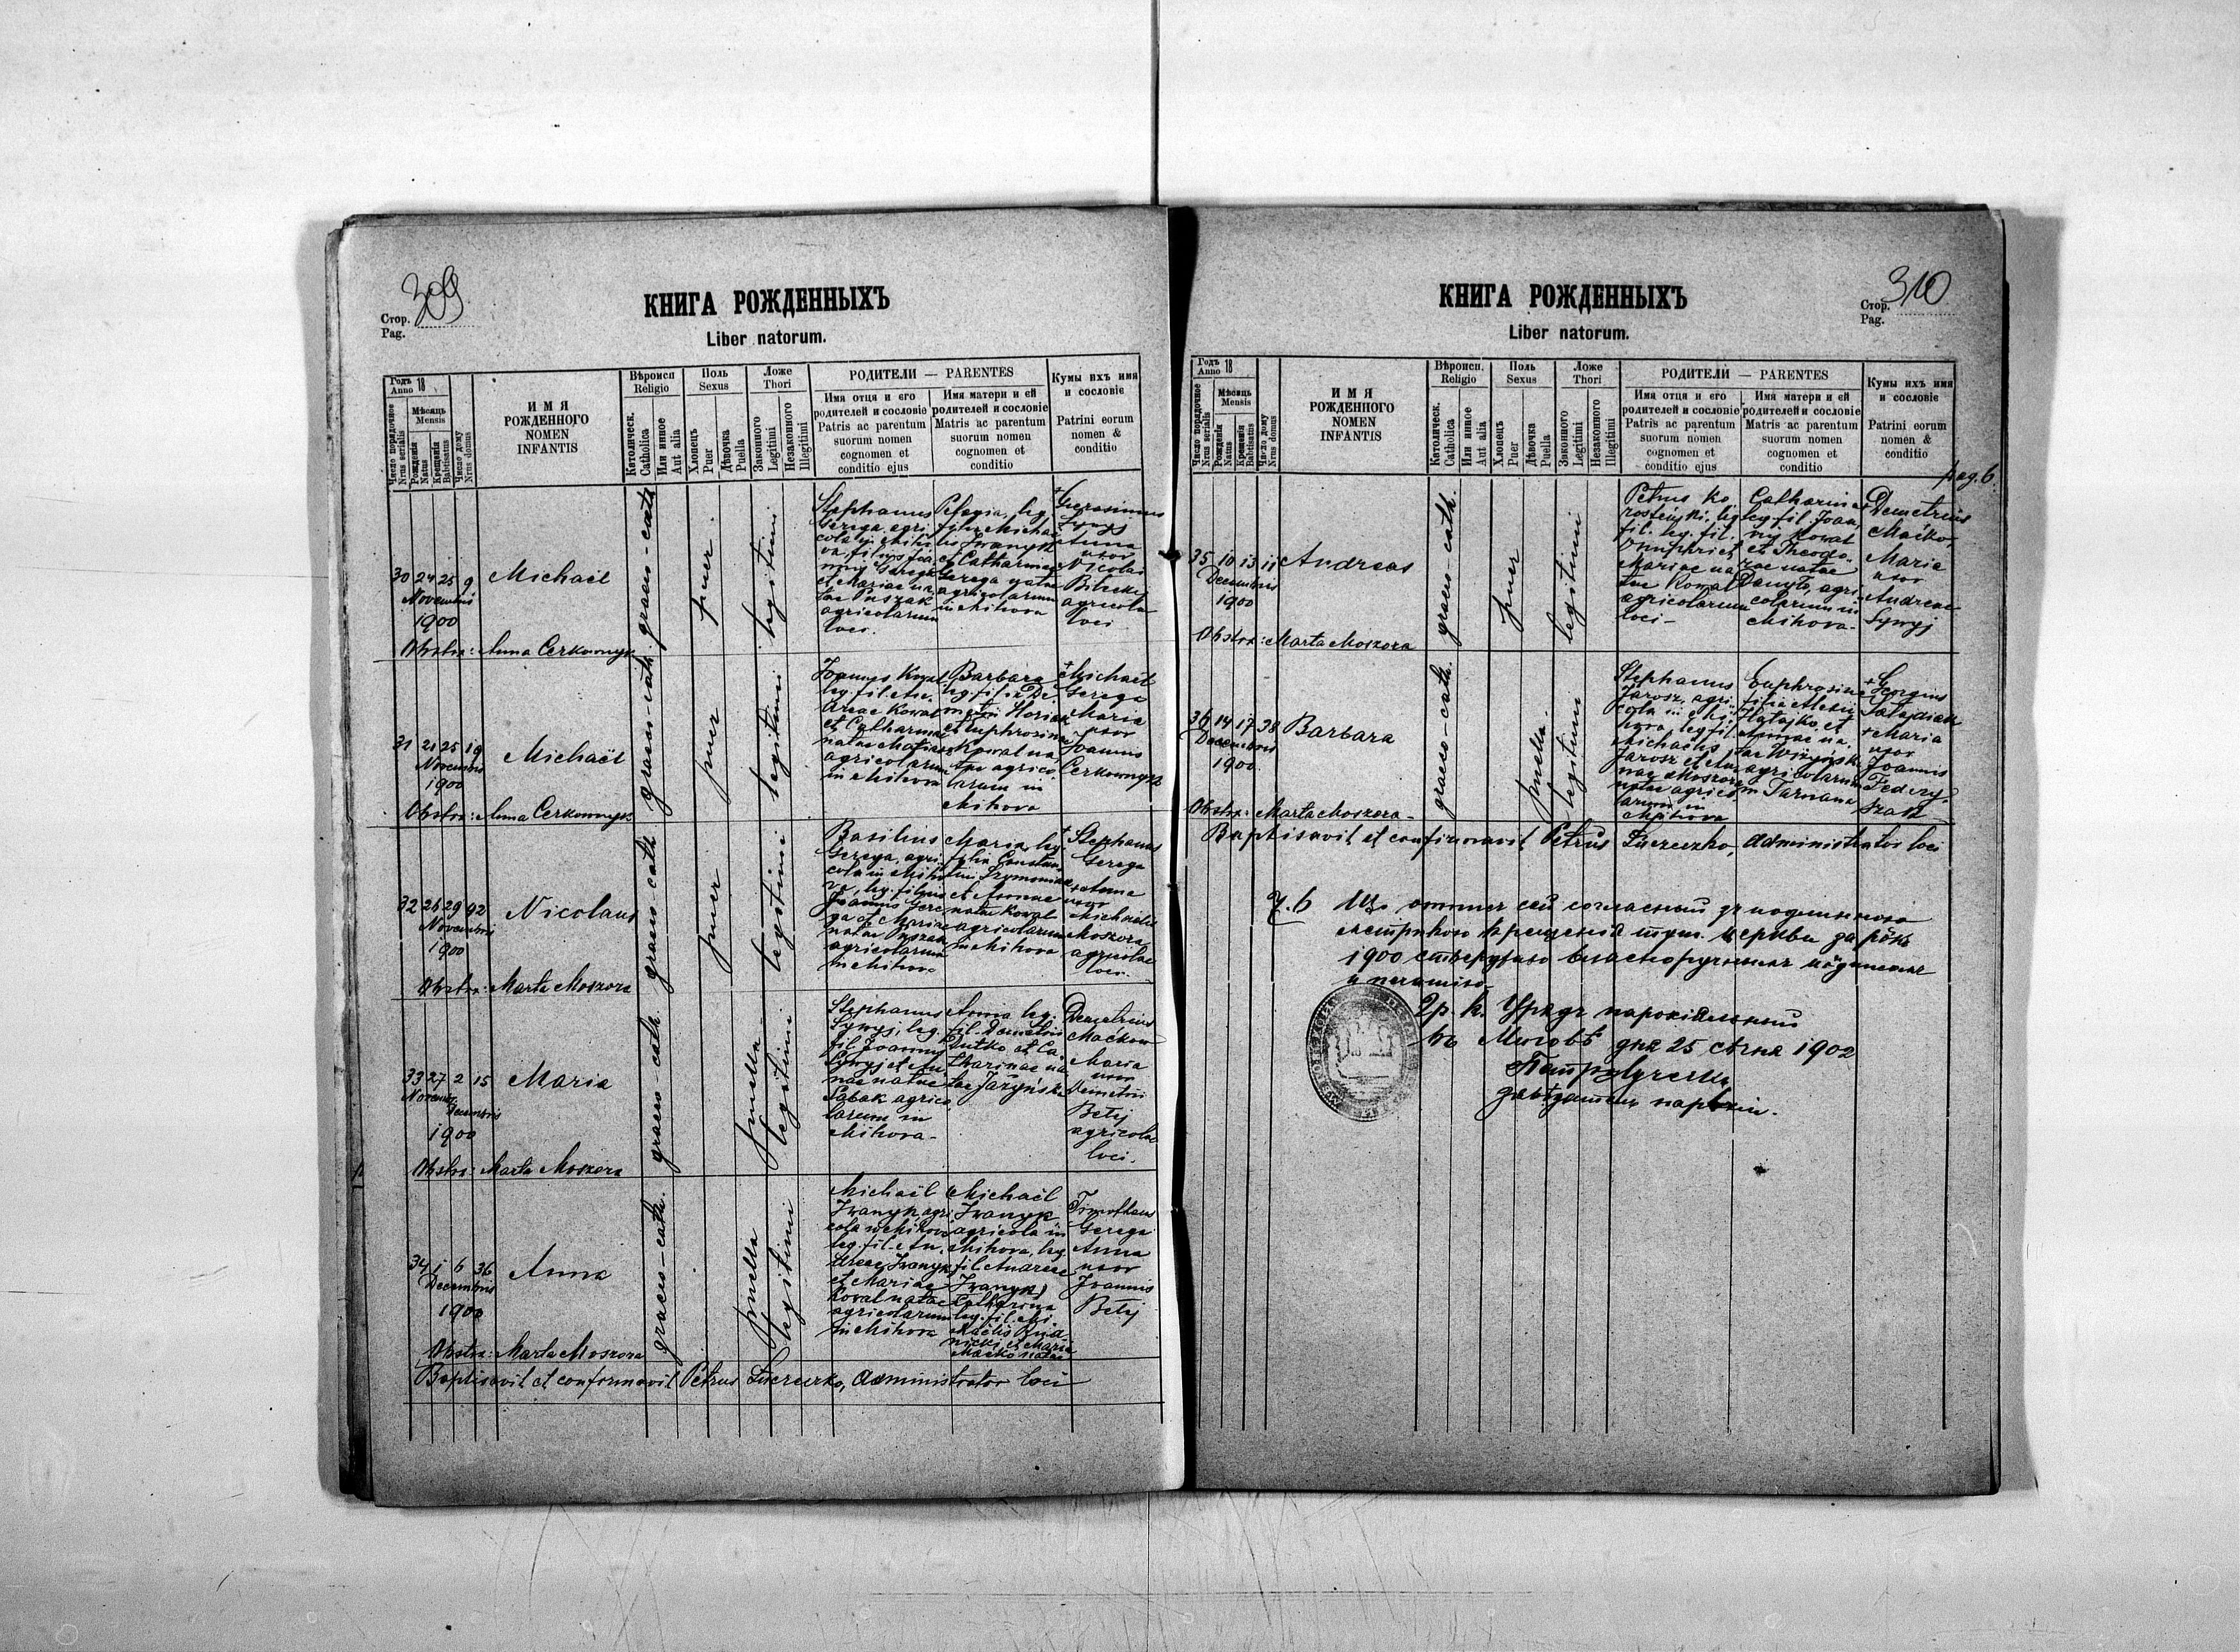 309
Стор.
Pag.
КНИГА РОЖДЕННЫХЪ
Liber natorum.
Годъ 18
Anno
Мѣсяць
Mensis
Число порядочное
Nrus serialis
Рожденія
Natus
Крещенія
Babtisatus
Число дому
Nrus domus
ИМЯ
РОЖДЕННОГО
NOMEN
INFANTIS
Вѣроисп
Religio
Католическ.
Catholica
Или инное
Aut alia
Поль
Sexus
Хлопець
Puer
Дѣвочка
Puella
Ложе
Thori
Законного
Legitimi
Незаконного
Illegitimi
РОДИТЕЛИ — PARENTES
Имя отця и его
родителей и сословіе
Patris ac parentum
suorum nomen
cognomen et
conditio ejus
Имя матери и ей
родителей и сословіе
Matris ac parentum
suorum nomen
cognomen et
conditio
Кумы ихъ имя
и сословіе
Patrini eorum
nomen &
conditio
30 24 25 9
Novembris
1900
Michaël
graeco-cath
puer
legitimi
Stephanus
Gerega agri
cola in Miho
va, filius Joa
nnis Gerega
et Mariae na
tae Puszak
agricolarum
loci.
Pelagia, leg.
filia Michae
lis Iwanyk
et Catharinae
Gerega natae
agricolarum
in Mihova
Gerasimus
Sywyj
Anna
uxor
Nicolai
agricola
loci
Obstrx: Anna Cerkownyk
31 21 25 19
Novembris
1900
Michaël
graeco-cath.
puer
legitimi
Joannes Kowal
leg. fil. An-
dreae Kowal
et Catharinae
natae
agricolarum
in Mihova
Barbara
leg. filia De
metrii Horiak
et Euphrosinae
Kowal na
tae agrico
larum in
Mihova
+Michaël
Gerega
Maria
uxor
Joannis
Cerkownyk
Obstrx: Anna Cerkownyk
32 26 29 92
Novembris
1900
Nicolaus
graeco-cath
puer
legitimi
Basilius
Gerega, agri
cola in Miho
va, leg. filius
Joannis Gere
ga et Mariae
natae Puszak
agricolarum
in Mihova
Maria, leg.
filia Constan
tini Szymoniak
et Annae
natae Kowal
agricolarum
in Mihova
+Stephanus
Gerega
+Anna
uxor
Michaelis
Moszora
agricolae
loci.
Obstrx: Marta Moszora
33 27 2 15
Novembr.
Decembris
1900
Maria
graeco-cath
puella
legitimi
Stephanus
Sywyj, leg.
fil Joannis
Sywyj et An
nae natae
Sabak agrico
larum in
Mihova-
Anna leg.
fil. Demetrii
Dutko et Ca
tharinae na
tae
Demetrius
Maćkow
Maria
uxor
Demetrii
Betij
agricolae
loci.
Obstrx: Marta Moszora
34 1 6 36
Decembris
1900
Anna
graeco-cath.
puella
legitimi
Michaël
Iwanyk agri
cola in Mihova
leg. fil. An
dreae Iwanyk
et Mariae
Kowal natae
agricolarum
in Mihova
Michaël
Iwanyk
agricola in
Mihova, leg.
fil Andreae
Iwanyk)
Catharina
leg. fil. Mi
chaelis Rud
nicki et Maria
Maćko natae
Timotheus
Gerega
Anna
uxor
Joannis
Betij
Obstrx: Marta Moszora
Baptisavit et confirmavit Petrus Łuczeczko, Administrator loci
310
Стор.
Pag.
КНИГА РОЖДЕННЫХЪ
Liber natorum.
Годъ 18
Anno
Мѣсяць
Mensis
Число порядочное
Nrus serialis
Рожденія
Natus
Крещенія
Babtisatus
Число дому
Nrus domus
ИМЯ
РОЖДЕННОГО
NOMEN
INFANTIS
Вѣроисп.
Religio
Католическ.
Catholica
Или инное
Aut alia
Поль
Sexus
Хлопець
Puer
Дѣвочка
Puella
Ложе
Thori
Законного
Legitimi
Незаконного
Illegitimi
РОДИТЕЛИ — PARENTES
Имя отця и его
родителей и сословіе
Patris ac parentum
suorum nomen
cognomen et
conditio ejus
Имя матери и ей
родителей и сословіе
Matris ac parentum
suorum nomen
cognomen et
conditio
Кумы ихъ имя
и сословіе
Patrini eorum
nomen &
conditio
pag. 6.
35 10 13 11
Decembris
1900
Andreas
graeco-cath.
puer
legitimi
Petrus Ko
rosteński, leg
fil. leg. fil.
Onuphrii et
Mariae na
tae Kowal
agricolarum
loci-
Catharina
leg. fil. Joan
nis Kowal
et Theodo
rae natae
Danyło, agri
colarum in
Mihova-
+Demetrius
Maćko,
Maria
uxor
Andreae
Sywyj
Obstrx: Marta Moszora
36 14 17 38
Decembris
1900
Barbara
graeco-cath.
puella.
legitimi
Stephanus
Jarosz, agri
cola in Mi
hova, leg. fil
Michaelis
Jarosz et An
nae Moszora
natae agrico
larum in
Mihova
Euphrosina
filia
Hatajko et
Annae na
tae
agricolarum
in Tarnawa
+Georgius
+Maria
uxor
Joannis
Federy
szak
Obstrx: Marta Moszora-
Baptisavit et confirmavit Petrus Łuczeczko, Administrator loci
Ч. 6 Що отпись сей согласный зъ подлинною
метрикою крещенія тут. церкви за рôкъ
1900 стверджаю власноручным пôдписомъ
и печатію
Гр. к. Урядъ парохіяльный
въ Миговѣ дня 25 сѣчня 1902
завѣдатель парохіи.